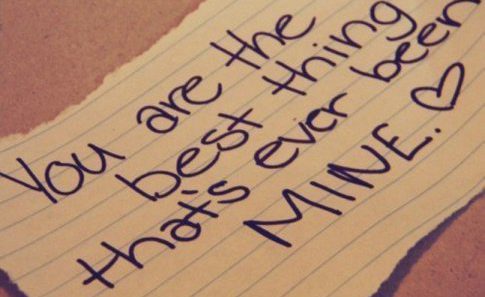 You are the
best thing
that's ever been
MINE. ♡